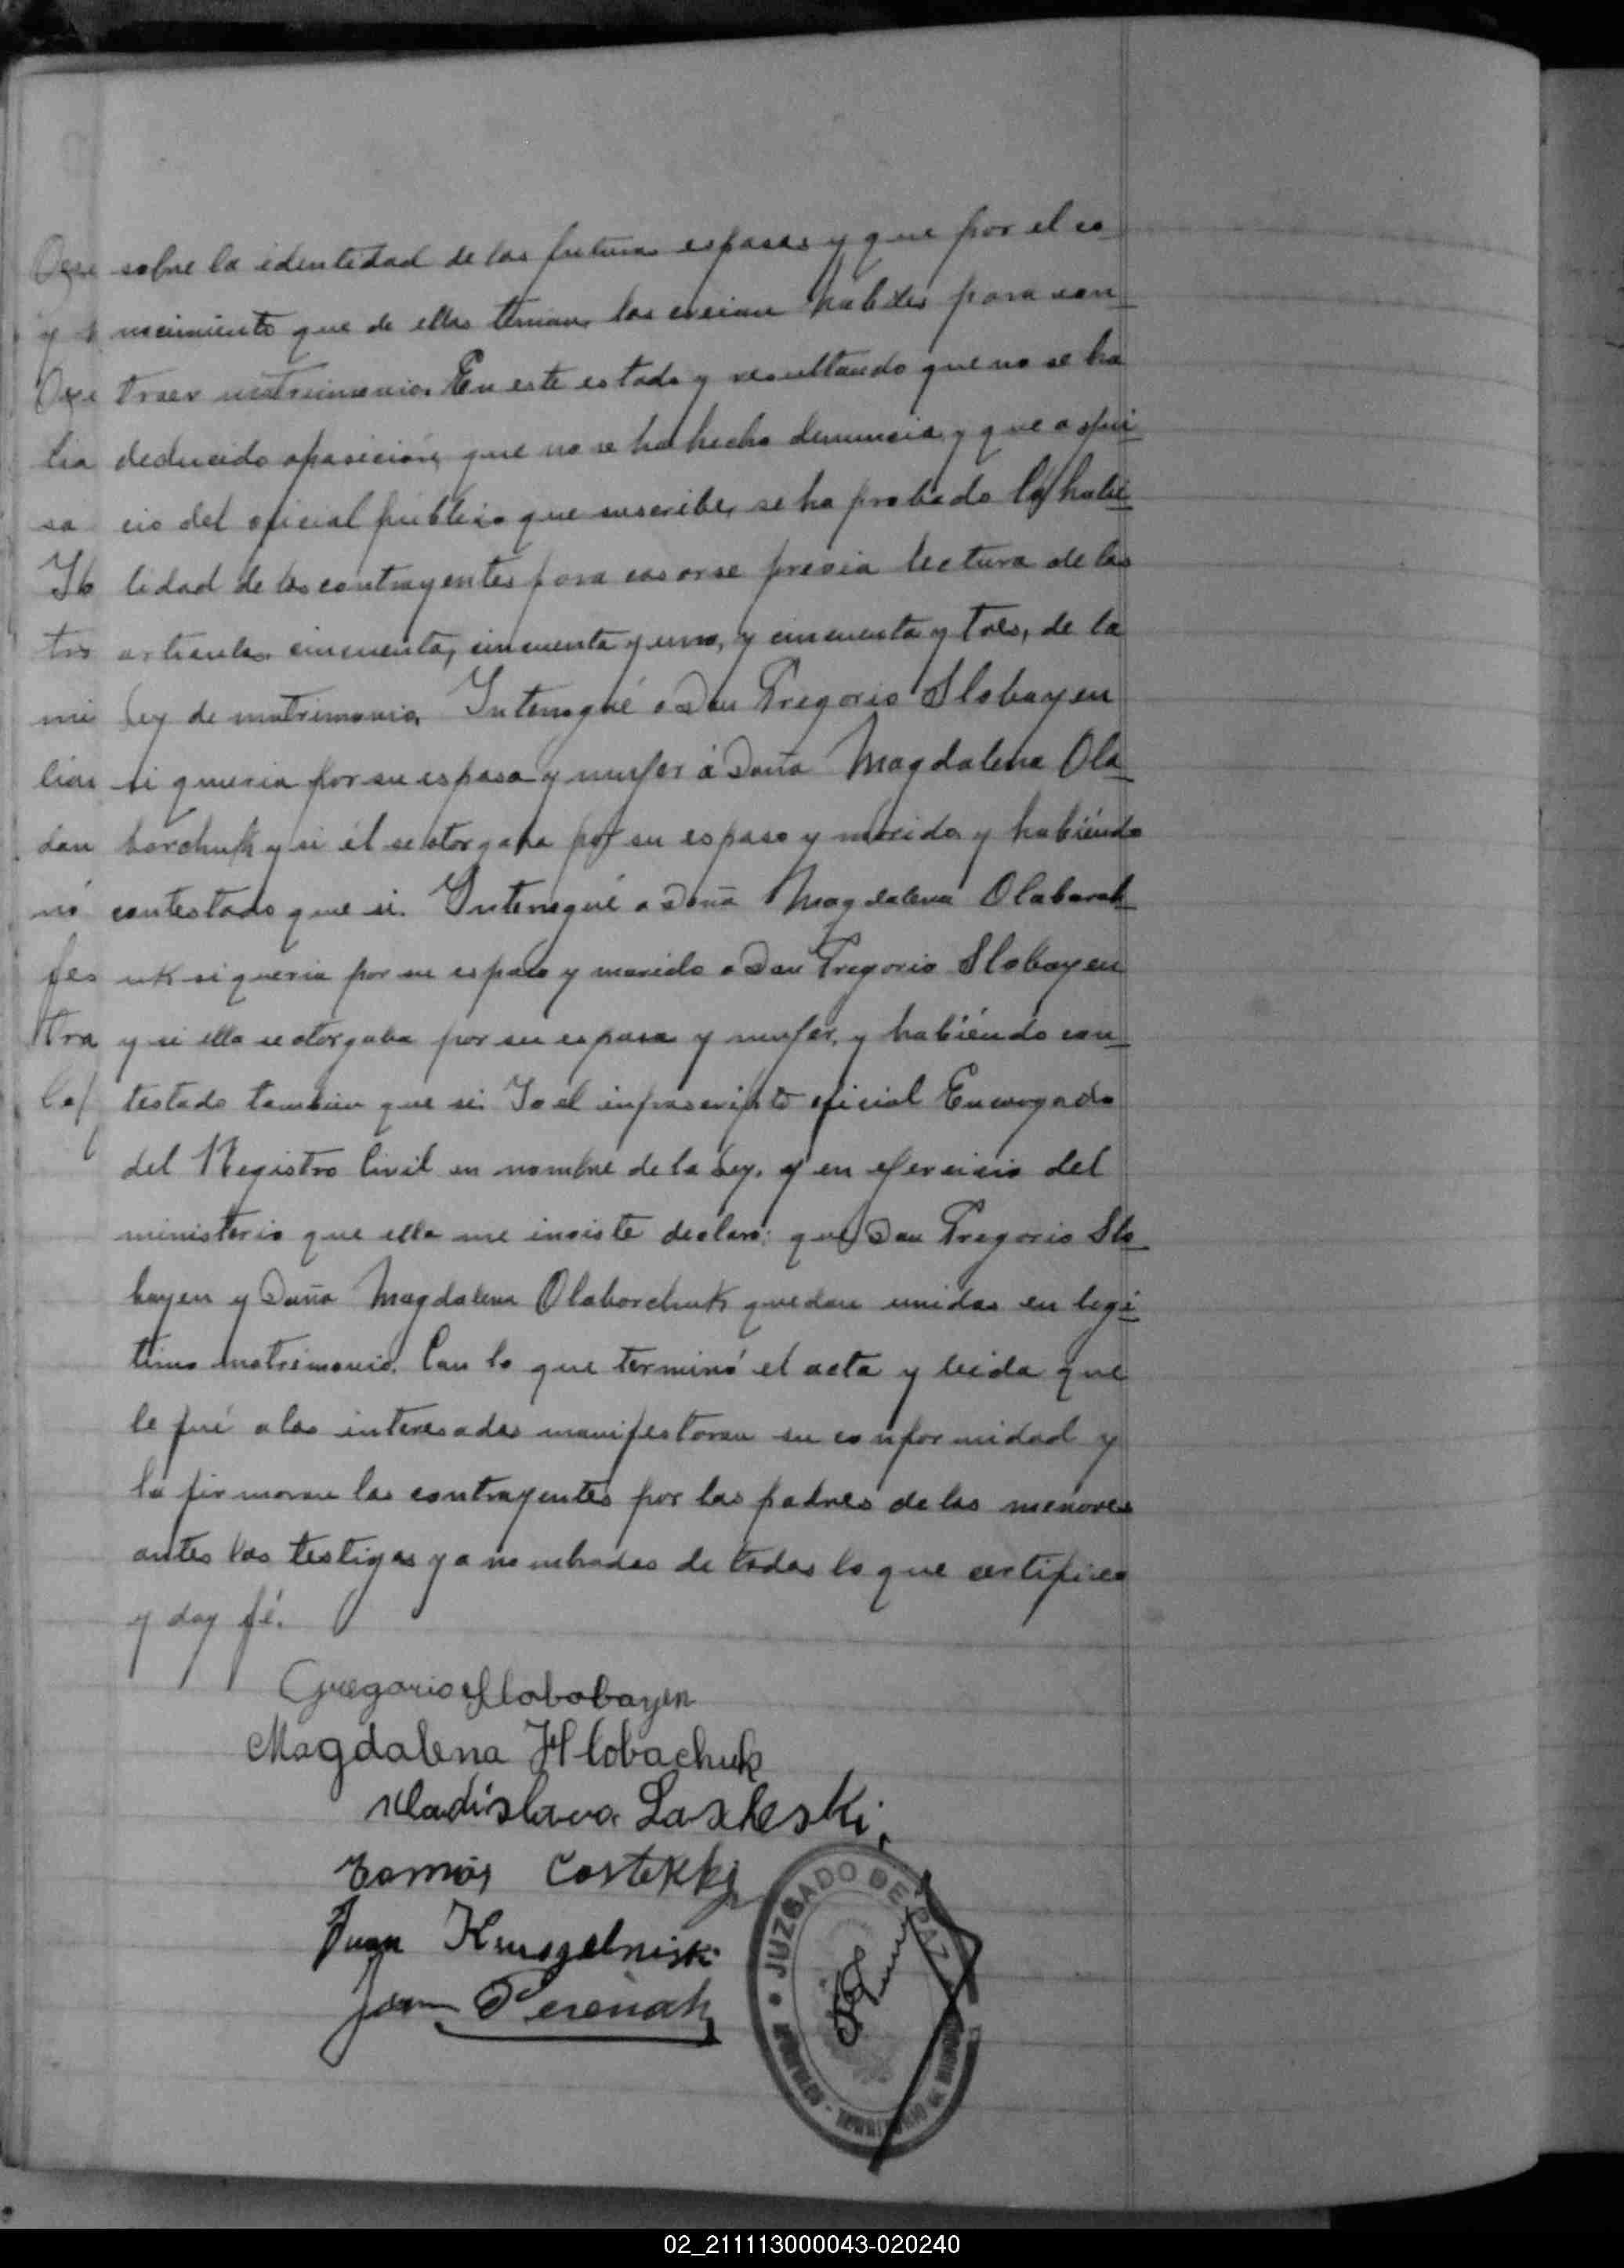 sobre la identidad de los futuros esposos y que por el co
nocimiento que de ellos tenian, los creian habiles para con
traer matrimonio. En este estado y resultando que no se ha
deducido oposición, que no se ha hecho denuncia, y que a jui
cio del oficial público que suscribe, se ha probado la habi
lidad de los contrayentes para casarse previa lectura de los
articulos cincuenta, cincuenta y uno, y cincuenta y tres, de la
Ley de matrimonio, Interrogué a Don Gregorio Slobayen
si queria por su esposa y mujer á Doña Magdalena Ola
borchuk y si él se otorgaba por su esposo y marido, y habiéndo
contestado que si. Interrogué a Doña Magdalena Olaborch
uk si queria por su esposo y marido a Don Gregorio Slobayen
y si ella se otorgaba por su esposa y mujer, y habiéndo con
testado tambien que si. Yo el infrascripto oficial Encargado
del Registro Civil en nombre de la Ley, y en ejercicio del
ministerio que ella me insiste declaro: que Don Gregorio Slo
bayen y Doña Magdalena Olaborchuk quedan unidos en legi
timo matrimonio. Con lo que terminó el acta y leida que
le fué a los interesados manifestaron su conformidad y
la firmaron los contrayentes por los padres de los menores
antes los testigos ya nombrados de todos lo que certifico
y doy fé.
Gregorio Slobobayen
Magdalena Hlobachuk
Juan
Juan
JUZGADO DE PAZ
02_211113000043-020240